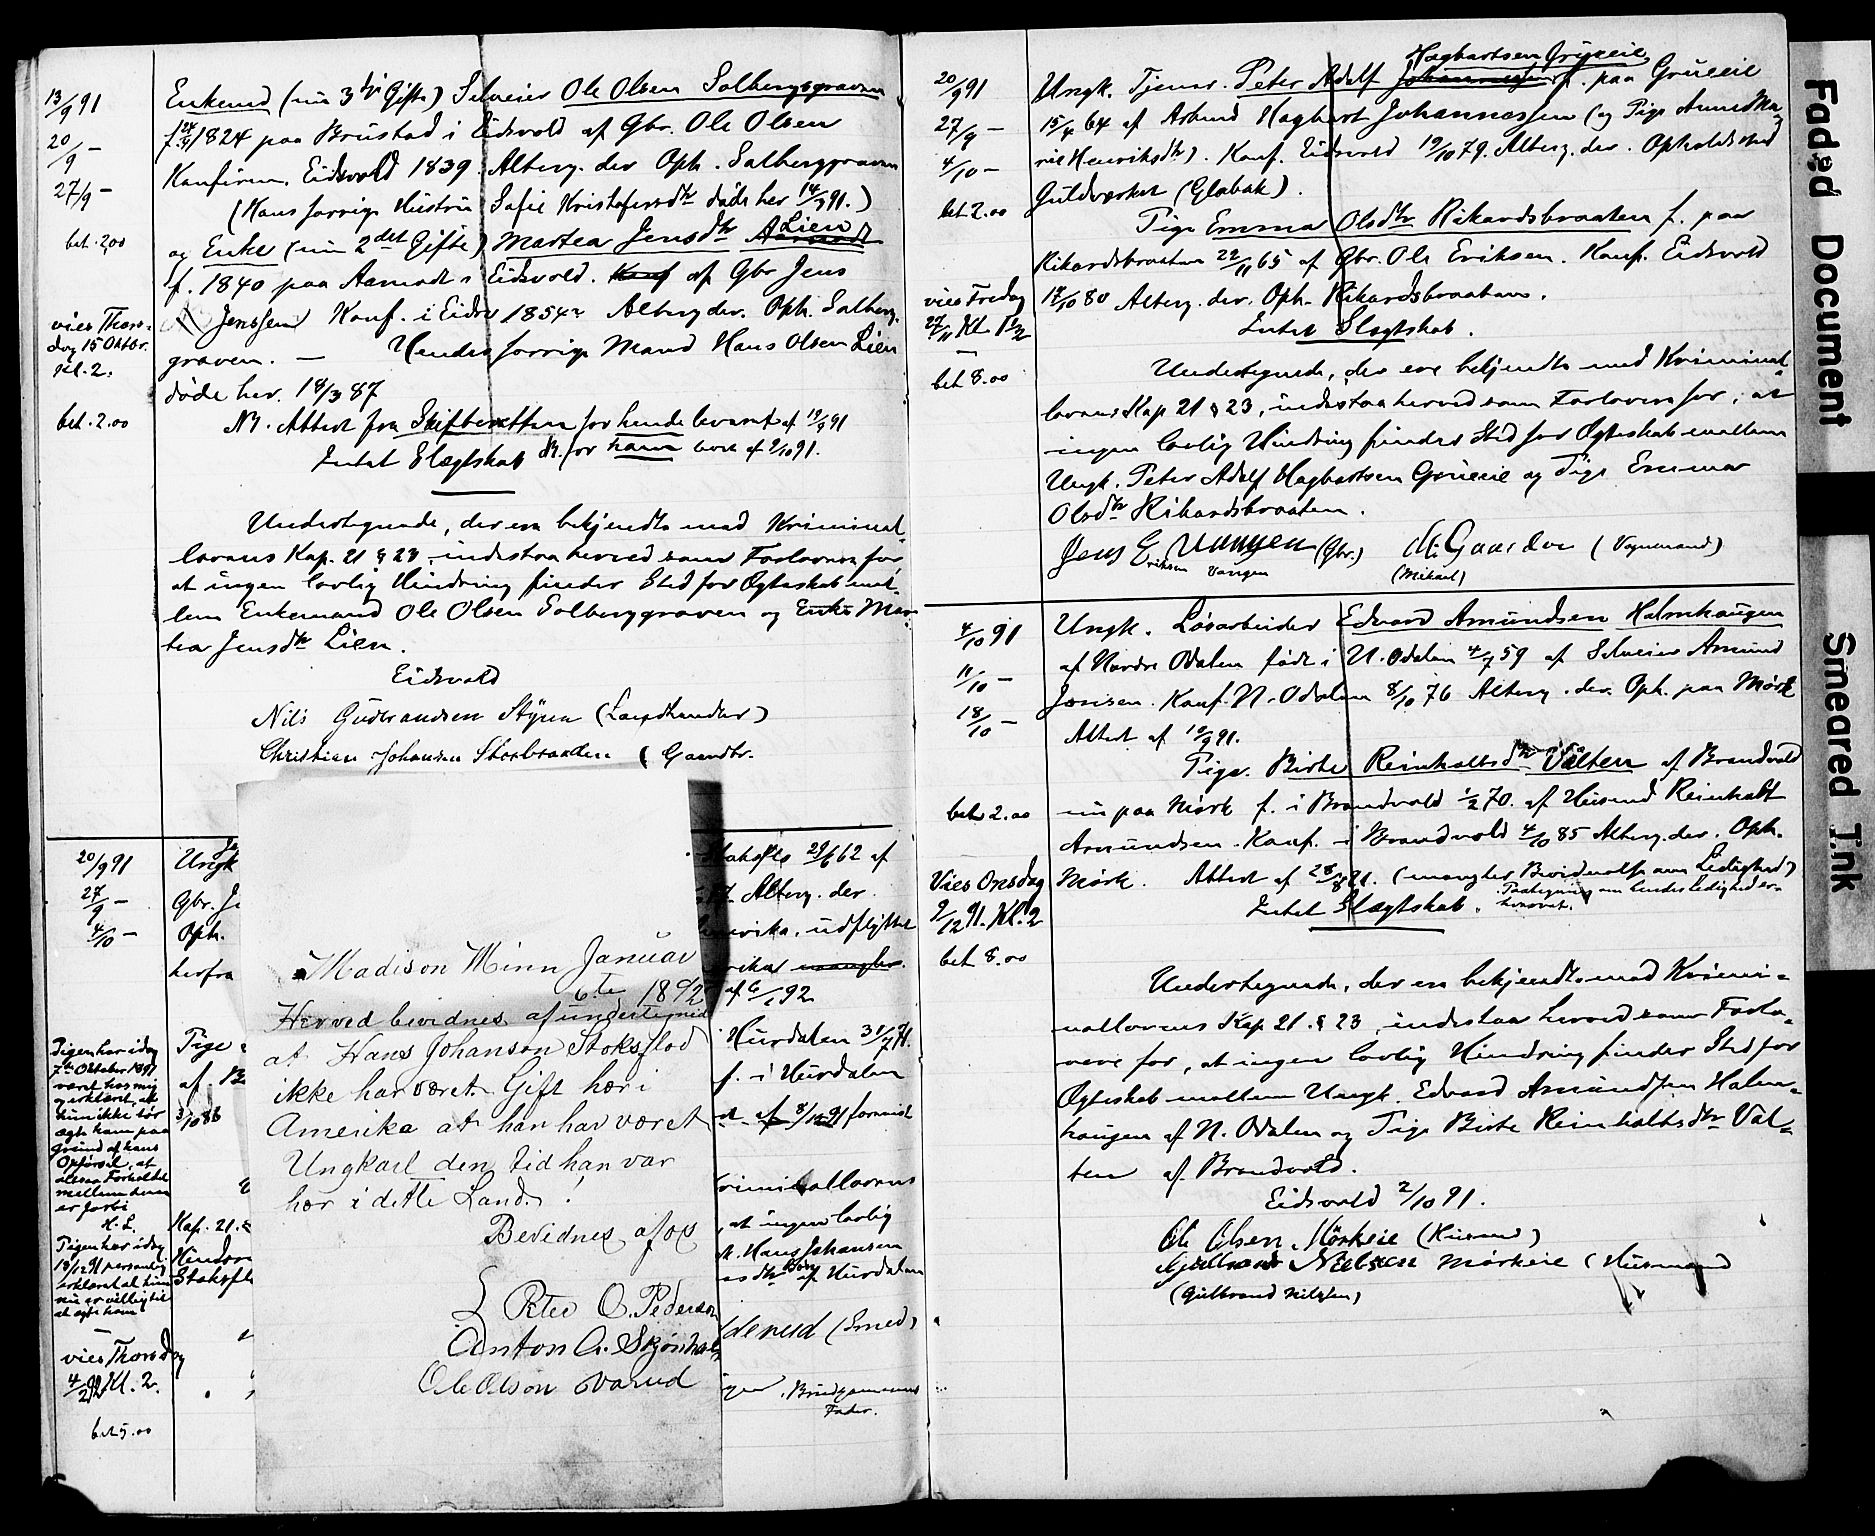 13/9 91
20/9 –
27/9 –
bet. 2,00
vies Thors-
dag 15 Oktbr.
Kl. 2.
bet. 2.00
Enkemd (nu 3die Gifte) Selveier Ole Olsen Solbergsgraven
f. 1824 paa Brustad i Eidsvold af Gbr. Ole Olsen
Konfirm. Eidsvold 1839. Alterg. der Oph. Solberggraven
(Hans forrige Hustru Sofie Kristofersdtr døde her 14/3 91.)
og Enke (nu 2det Gifte) Martea Jensdtr Lien
f. 1840 paa Aamodt i Eidsvold. Konf af Gbr Jens
Jenssen Konf. i Eidsv 1854 Alterg der. Oph. Solberg-
graven. — Hendes forrige Mand Hans Olsen Lien
døde her. 18/3 87
NB. Attest fra Skifteretten for hende leveret af 19/9 91
Intet Slægtskab NB. for ham lev. af 2/10 91.
Undertegnede, der ere bekjendte med Kriminal-
lovens Kap. 21 § 23, indestaa herved som Forlovere for,
at ingen lovlig Hindring finder Sted for Ægteskab mel-
lem Enkemand Ole Olsen Solberggraven og Enke Mar-
tea Jensdtr Lien.
Eidsvold
Nils Gudbrandsen Styrin (Landhandler)
Christian Johansen Storbraaden (Gaardbr.
20/9 91
27/9 –
4/10 –
Ungk
Gbr. J
Oph.
herfra
Stoksflo 29/6 62 af
Alterg. der
merika, udflyttet
rika mangler.
af 6/1 92
Pigen har idag
7de Oktober 1891
været hos mig
og erklæret, at
hun ikke tør
ægte ham paa
Grund af hans
Opførsel, at
altsaa Forholdet
mellem dem
er forbi
H. L.
Pigen har idag
18/12 91 personlig
erklæret at hun
nu er villig til
at ægte ham
–
vies Thorsdag
4/2 92 Kl. 2.
bet 5.00
Pige
af B
3/10 86
Kap. 21. §
Hindrin
Stoksfl
Hurdalen 31/7 71.
f. i Hurdalen
af 8/12 91 formidt
riminallovens
, at ingen lovlig
k. Hans Johansen
sdtr af Hurdalen
denud (Smed)
Brudgommens
Fader.
Madison Minn Januar
6te 1892
Herved bevidnes af undertegned
at Hans Johanson Stoksflod
ikke har været Gift her i
Amerika at han har været
Ungkarl den tid han var
her i dette Land.
Bevidnes af os
Peter O. Pederson
Anton A. Skjønhals
Ole Olson Varud
20/9 91
27/9 –
4/10 –
bet. 2.00
vies Fredag
27/11 Kl. 1½
–
bet 8.00
Hagbartsen Grüeeie
Ungk. Tjener. Peter Adolf Johannessen f. paa Grüeeie
15/4 64 af Arbmd Hagbart Johannessen (og Pige Anne Ma-
rie Henriksdtr). Konf. Eidsvold 19/10 79. Alterg. der. Opholdssted
Guldverket (Globak).
Pige Emma Olsdtr Rikardsbraaten f. paa
Rikardsbraaten 22/11 65 af Gbr. Ole Eriksen. Konf. Eidsvold
17/10 80 Alterg. der. Oph. Rikardsbraaten.
Intet Slægtskab.
Undertegnede, der ere bekjendte med Kriminal-
lovens Kap 21 § 23, indestaa herved som Forlovere for, at
ingen lovlig Hindring finder Sted for Ægteskab mellem
Ungk. Peter Adolf Hagbartsen Grüeeie og Pige Emma
Olsdtr Rikardsbraaten.
Jens Eriksen Vangen (Gbr.) M. Gaarder (Vognmand)
Vangen (Mikael)
4/10 91
11/10 –
18/10 –
bet 2.00
Vies Onsdag
9/12 91. Kl. 2
bet 8.00
Ungk. Løsarbeider Edvard Amundsen Holmhaugen
af Nordre Odalen født i N. Odalen 4/7 59 af Selveier Amund
Jonsen. Konf. N. Odalen 8/10 76 Alterg. der. Oph. paa Mørk
Attest af 19/9 91.
Pige. Birte Reinholtsdtr Välten af Brandvold
nu paa Mørk f. i Brandvold 1/2 70. af Husmd Reinholt
Amundsen. Konf. i Brandvold 4/10 85 Alterg. der. Oph.
Mørk. Attest af 28/8 91. (mangler Bevidnelse om Ledighed)
Paategning om hendes Ledighed er
Intet Slægtskab.
Undertegnede, der ere bekjendte med Krimi-
nallovens Kap 21. § 23, indestaa herved som Forlo-
vere for, at ingen lovlig Hindring finder Sted for
Ægteskab mellem Ungk. Edvard Amundsen Holm-
haugen af N. Odalen og Pige Birte Reinholtsdtr Väl-
ten af Brandvold.
Eidsvold 2/10 91.
Ole Olsen Mørkeie (Husmd)
Gudbrand Nielsen Mørkeie (Husmand
(Gulbrand Nilssen)
Faded Document
Smeared Ink